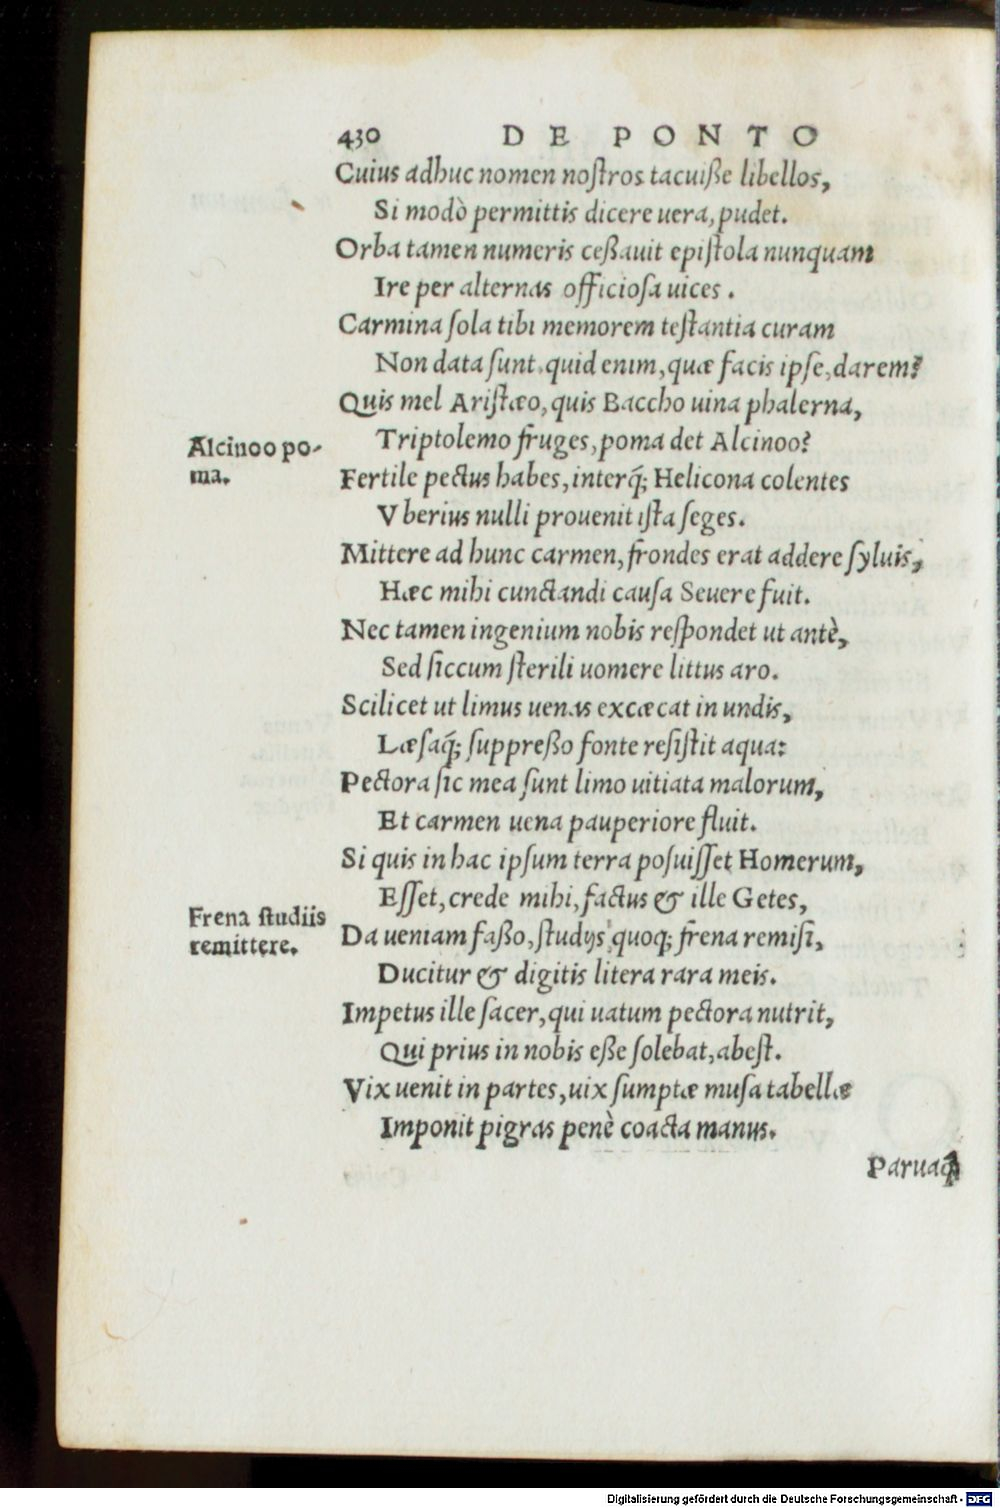 430 DE PONTO
Cuius adhuc nomen noſtros tacuiße libellos,
Si modò permittis dicere uera, pudet.
Orba tamen numeris ceßauit epiſtola nunquam
Ire per alternas officioſa uices.
Carmina ſola tibi memorem teſtantia curam
Non data ſunt. quid enim, quæ facis ipſe, darem?
Quis mel Ariſtæo, quis Baccho uina phalerna,
Triptolemo fruges, poma det Alcinoo?
Alcinoo po-
ma.
Fertile pectus habes, interq́; Helicona colentes
Vberius nulli prouenit iſta ſeges.
Mittere ad hunc carmen, frondes erat addere ſyluis,
Hæc mihi cunctandi cauſa Seuere fuit.
Nec tamen ingenium nobis reſpondet ut antè,
Sed ſiccum ſterili uomere littus aro.
Scilicet ut limus uenas excæcat in undis,
Læſaq́; ſuppreßo fonte reſiſtit aqua:
Pectora ſic mea ſunt limo uitiata malorum,
Et carmen uena pauperiore fluit.
Si quis in hac ipſum terra poſuiſſet Homerum,
Eſſet, crede mihi, factus & ille Getes,
Frena ſtudiis
remittere.
Da ueniam faßo, ſtudijs quoq; frena remiſi,
Ducitur & digitis litera rara meis.
Impetus ille ſacer, qui uatum pectora nutrit,
Qui prius in nobis eße ſolebat, abeſt.
Vix uenit in partes, uix ſumptæ muſa tabellæ
Imponit pigras penè coacta manus.
Paruaq́;
Digitalisierung gefördert durch die Deutsche Forschungsgemeinschaft - DFG